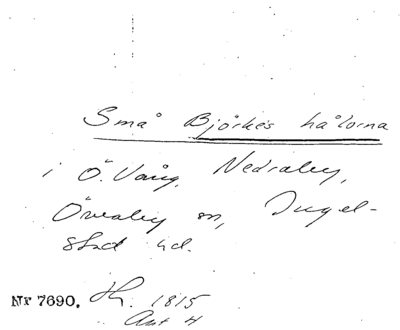 Små Björkes hålorna
i Ö. Vång, Nedraby,
Övraby sn, Ingel-
stad hd.
Nr 7690. Sk. 1815
Akt 4